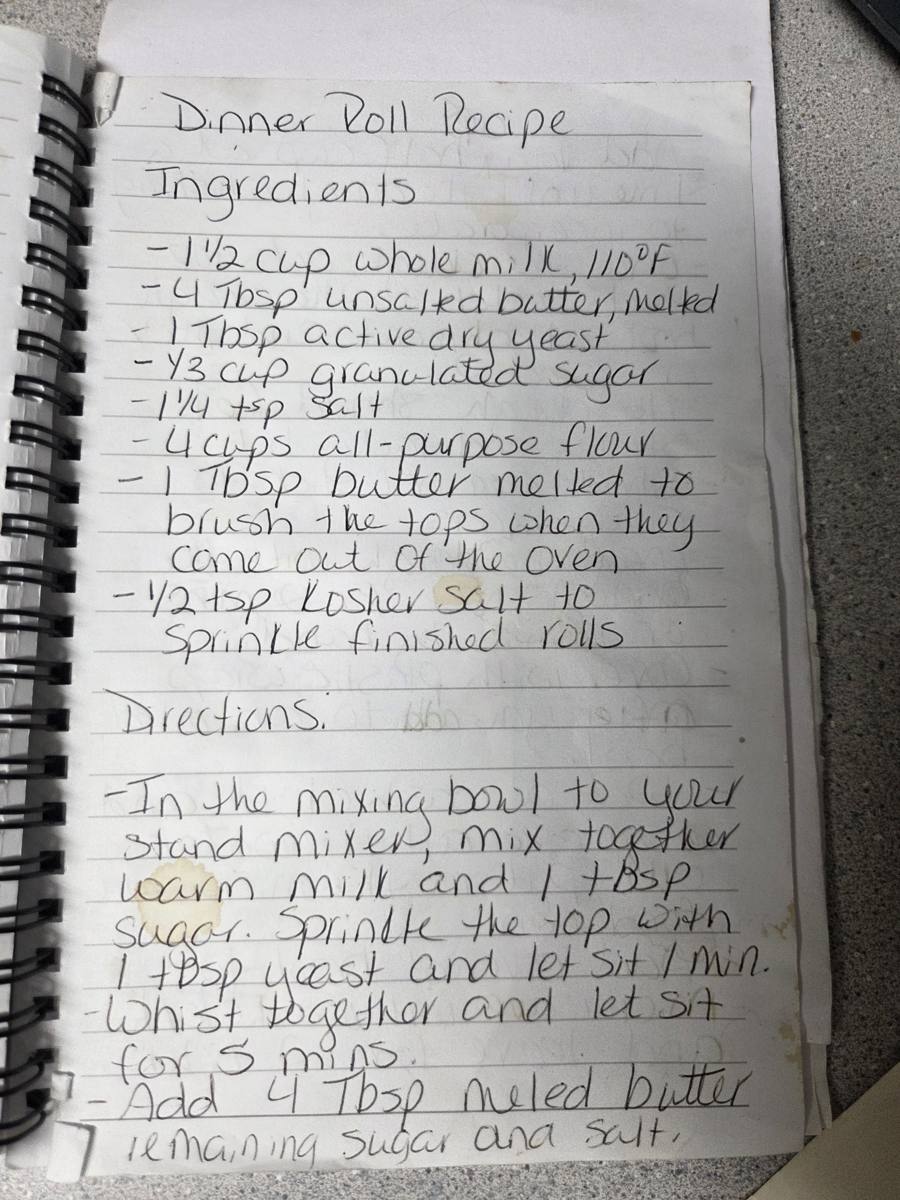 Dinner Roll Recipe
Ingredients
- 1 1/2 cup whole milk, 110°F
- 4 Tbsp unsalted butter, melted
- 1 Tbsp active dry yeast
- 1/3 cup granulated sugar
- 1 1/4 tsp salt
- 4 cups all-purpose flour
- 1 Tbsp butter melted to
brush the tops when they
come out of the oven
- 1/2 tsp Kosher salt to
sprinkle finished rolls
Directions:
- In the mixing bowl to your
stand mixer, mix together
warm milk and 1 tBsp
sugar. Sprinkle the top with
1 tBsp yeast and let sit 1 min.
- Whist together and let sit
for 5 mins.
- Add 4 Tbsp meled butter
remaining sugar and salt.